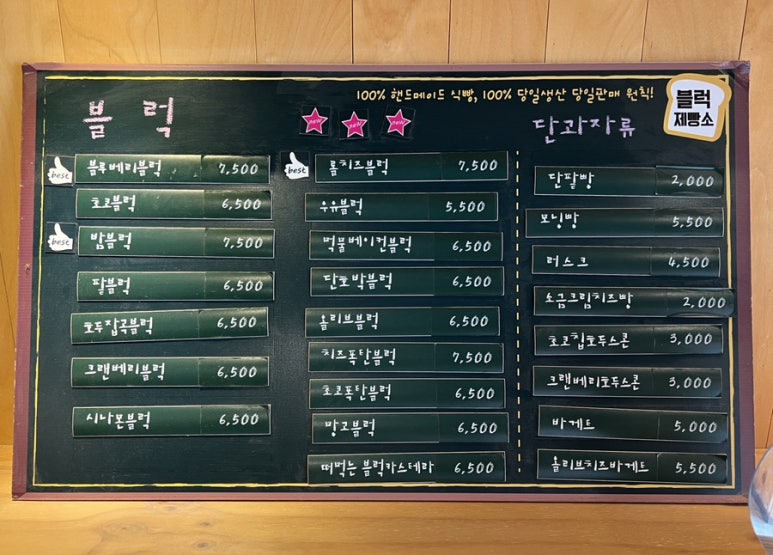 100% 핸드메이드 식빵, 100% 당일생산 당일판매 원칙!
블럭
제빵소
블 럭
best 블루베리블럭 7,500
초코블럭 6,500
best 밤블럭 7,500
팥블럭 6,500
호두잡곡블럭 6,500
크랜베리블럭 6,500
시나몬블럭 6,500
new new new
best 롤치즈블럭 7,500
우유블럭 5,500
먹물베이컨블럭 6,500
단호박블럭 6,500
올리브블럭 6,500
치즈폭탄블럭 7,500
초코폭탄블럭 6,500
망고블럭 6,500
떠먹는 블럭카스테라 6,500
단과자류
단팥빵 2,000
모닝빵 5,500
러스크 4,500
소금크림치즈빵 2,000
초코칩호두스콘 3,000
크랜베리호두스콘 3,000
바게트 5,000
올리브치즈바게트 5,500